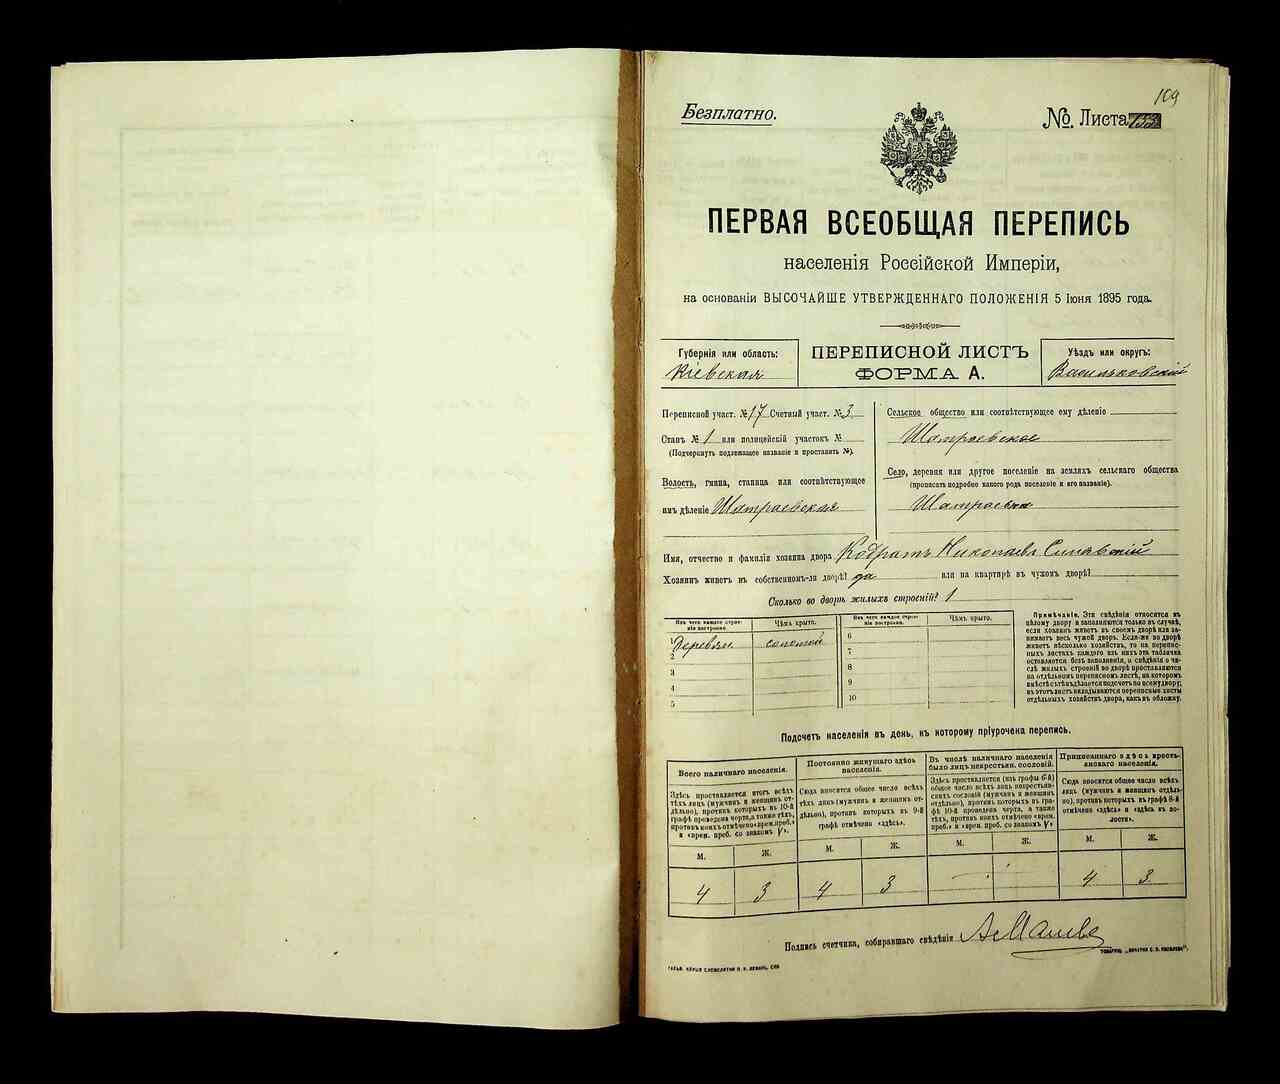 109
Безплатно.
№ Листа 133
ПЕРВАЯ ВСЕОБЩАЯ ПЕРЕПИСЬ
населенія Россійской Имперіи,
на основаніи ВЫСОЧАЙШЕ УТВЕРЖДЕННАГО ПОЛОЖЕНІЯ 5 Іюня 1895 года.
Губернія или область:
Кіевская
ПЕРЕПИСНОЙ ЛИСТЪ
ФОРМА А.
Уѣздъ или округъ:
Васильковскій
Переписной участ. № 17 Счетный участ. № 3
Станъ № 1 или полицейскій участокъ №
(Подчеркнуть подлежащее названіе и проставить №).
Волость, гмина, станица или соотвѣтствующее
имъ дѣленіе Шамраевская
Сельское общество или соотвѣтствующее ему дѣленіе
Шамраевское
Село, деревня или другое поселеніе на земляхъ сельскаго общества
(прописать подробно какого рода поселеніе и его названіе).
Шамраевка
Имя, отчество и фамилія хозяина двора Кодратъ Николаевъ Синявскій
Хозяинъ живетъ въ собственномъ-ли дворѣ? да или на квартирѣ въ чужомъ дворѣ?
Сколько во дворѣ жилыхъ строеній? 1
Изъ чего каждое строе-
ніе построено.
Чѣмъ крыто.
1 Деревян. соломой
2
3
4
5
Изъ чего каждое строе-
ніе построено.
Чѣмъ крыто.
6
7
8
9
10
Примѣчаніе. Эти свѣдѣнія относятся къ
цѣлому двору и заполняются только въ случаѣ,
если хозяинъ живетъ въ своемъ дворѣ или за-
нимаетъ весь чужой дворъ. Если-же во дворѣ
живетъ нѣсколько хозяйствъ, то на перепис-
ныхъ листахъ каждаго изъ нихъ эта табличка
оставляется безъ заполненія, а свѣдѣнія о чи-
слѣ жилыхъ строеній во дворѣ проставляются
на отдѣльномъ переписномъ листѣ, на которомъ
вмѣстѣ съ тѣмъ дѣлается подсчетъ по всему двору;
въ этотъ листъ вкладываются переписные листы
отдѣльныхъ хозяйствъ двора, какъ въ обложку.
Подсчетъ населенія въ день, къ которому пріурочена перепись.
Всего наличнаго населенія.
Здѣсь проставляется итогъ всѣхъ
тѣхъ лицъ (мужчинъ и женщинъ от-
дѣльно), противъ которыхъ въ 10-й
графѣ проведена черта, а также тѣхъ,
противъ коихъ отмѣчено «врем. преб.»
и «врем. преб. со знакомъ V».
М. Ж.
4 3
Постоянно живущаго здѣсь
населенія.
Сюда вносится общее число всѣхъ
тѣхъ лицъ (мужчинъ и женщинъ от-
дѣльно), противъ которыхъ въ 9-й
графѣ отмѣчено «здѣсь».
М. Ж.
4 3
Въ числѣ наличнаго населенія
было лицъ некрестьян. сословій.
Здѣсь проставляется (изъ графы 6-й)
общее число всѣхъ лицъ некрестьян-
скихъ сословій (мужчинъ и женщинъ
отдѣльно), противъ которыхъ въ гра-
фѣ 10-й проведена черта, а также
тѣхъ, противъ коихъ отмѣчено «врем.
преб.» и «врем. преб. со знакомъ V».
М. Ж.
Приписаннаго здѣсь кресть-
янскаго населенія.
Сюда вносится общее число всѣхъ
лицъ (мужчинъ и женщинъ отдѣль-
но), противъ которыхъ въ графѣ 8-й
отмѣчено «здѣсь» и «здѣсь въ во-
лости».
М. Ж.
4 3
Подпись счетчика, собиравшаго свѣдѣнія